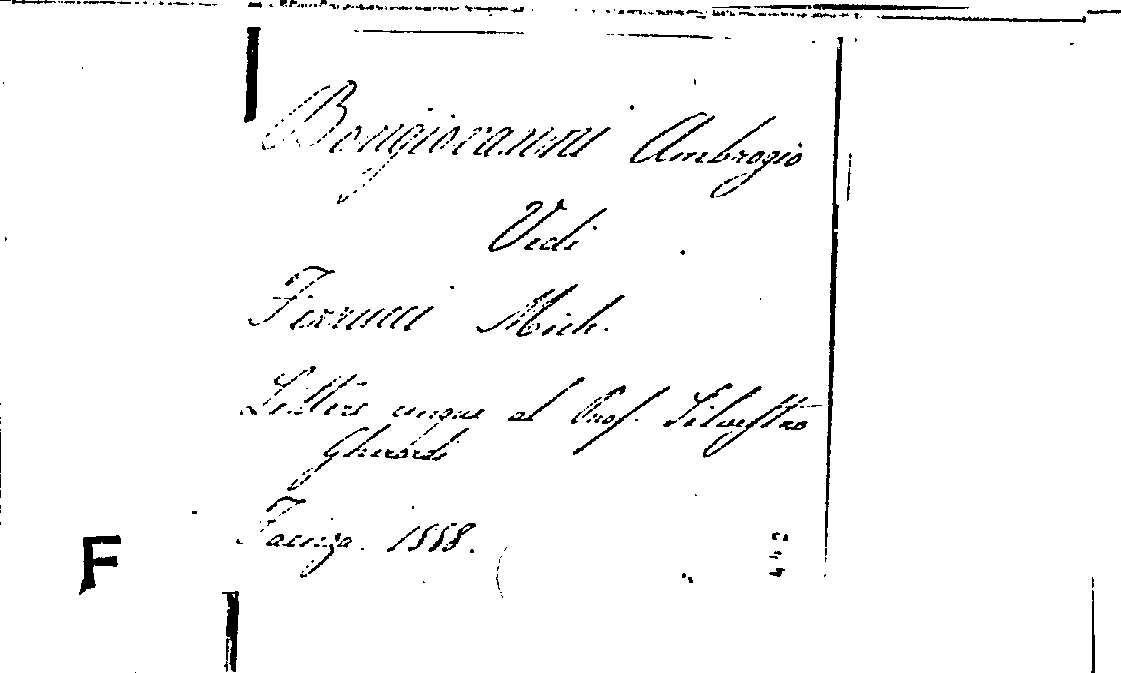 Bongiovanni Ambrogio
Vedi
Ferrucci Mich.
Lettere cinque al Prof. Silvestro
Gherardi
Faenza. 1858.
F